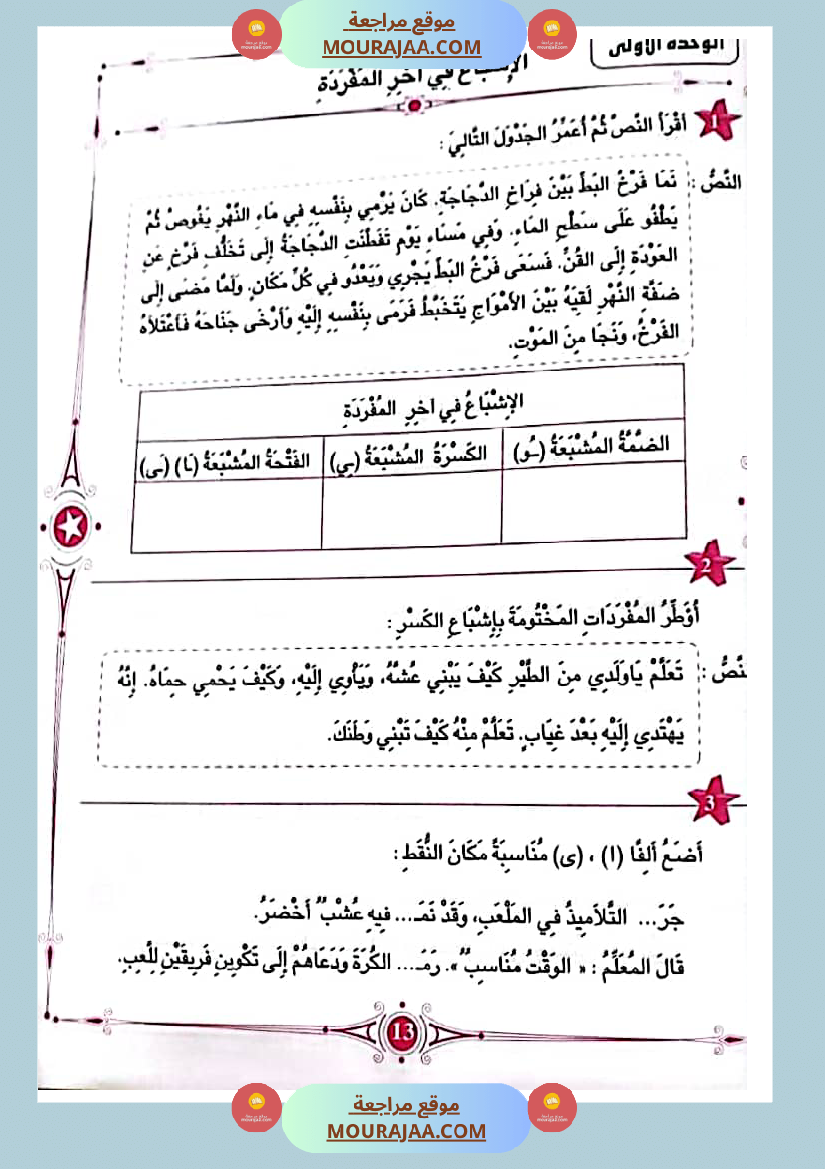 موقع مراجعة
MOURAJAA.COM
الوحدة الأولى
الإِشْبَاعُ فِي آخِرِ المُفْرَدَةِ
1
أَقْرَأُ النَّصَّ ثُمَّ أُعَمِّرُ الجَدْوَلَ التَّالِيَ :
النَّصُّ : نَمَا فَرْخُ البَطِّ بَيْنَ فِرَاخِ الدَّجَاجَةِ. كَانَ يَرْمِي بِنَفْسِهِ فِي مَاءِ النَّهْرِ يَغُوصُ ثُمَّ
يَطْفُو عَلَى سَطْحِ المَاءِ. وَفِي مَسَاءِ يَوْمٍ تَفَطَّنَتِ الدَّجَاجَةُ إِلَى تَخَلُّفِ فَرْخٍ عَنِ
العَوْدَةِ إِلَى القُنِّ. فَسَعَى فَرْخُ البَطِّ يَجْرِي وَيَعْدُو فِي كُلِّ مَكَانٍ. وَلَمَّا مَضَى إِلَى
ضَفَّةِ النَّهْرِ لَقِيَهُ بَيْنَ الأَمْوَاجِ يَتَخَبَّطُ فَرَمَى بِنَفْسِهِ إِلَيْهِ وَأَرْخَى جَنَاحَهُ فَاعْتَلاَهُ
الفَرْخُ، وَنَجَا مِنَ المَوْتِ.
الإِشْبَاعُ فِي آخِرِ المُفْرَدَةِ
الضمَّةُ المُشْبَعَةُ (ـُو) الكَسْرَةُ المُشْبَعَةُ (ـِي) الفَتْحَةُ المُشْبَعَةُ (ـَا) (ـَى)
2
أُؤَطِّرُ المُفْرَدَاتِ المَخْتُومَةَ بِإِشْبَاعِ الكَسْرِ :
نَّصُّ : تَعَلَّمْ يَاوَلَدِي مِنَ الطَّيْرِ كَيْفَ يَبْنِي عُشَّهُ، وَيَأْوِي إِلَيْهِ، وَكَيْفَ يَحْمِي حِمَاهُ. إِنَّهُ
يَهْتَدِي إِلَيْهِ بَعْدَ غِيَابٍ. تَعَلَّمْ مِنْهُ كَيْفَ تَبْنِي وَطَنَكَ.
3
أَضَعُ أَلِفًا (ا) ، (ى) مُنَاسِبَةً مَكَانَ النُّقَطِ :
جَرَ... التَّلاَمِيذُ فِي المَلْعَبِ، وَقَدْ نَمَـ... فِيهِ عُشْبٌ أَخْضَرُ.
قَالَ المُعَلِّمُ : « الوَقْتُ مُنَاسِبٌ ». رَمَـ... الكُرَةَ وَدَعَاهُمْ إِلَى تَكْوِينِ فَرِيقَيْنِ لِلَّعِبِ.
13
موقع مراجعة
MOURAJAA.COM